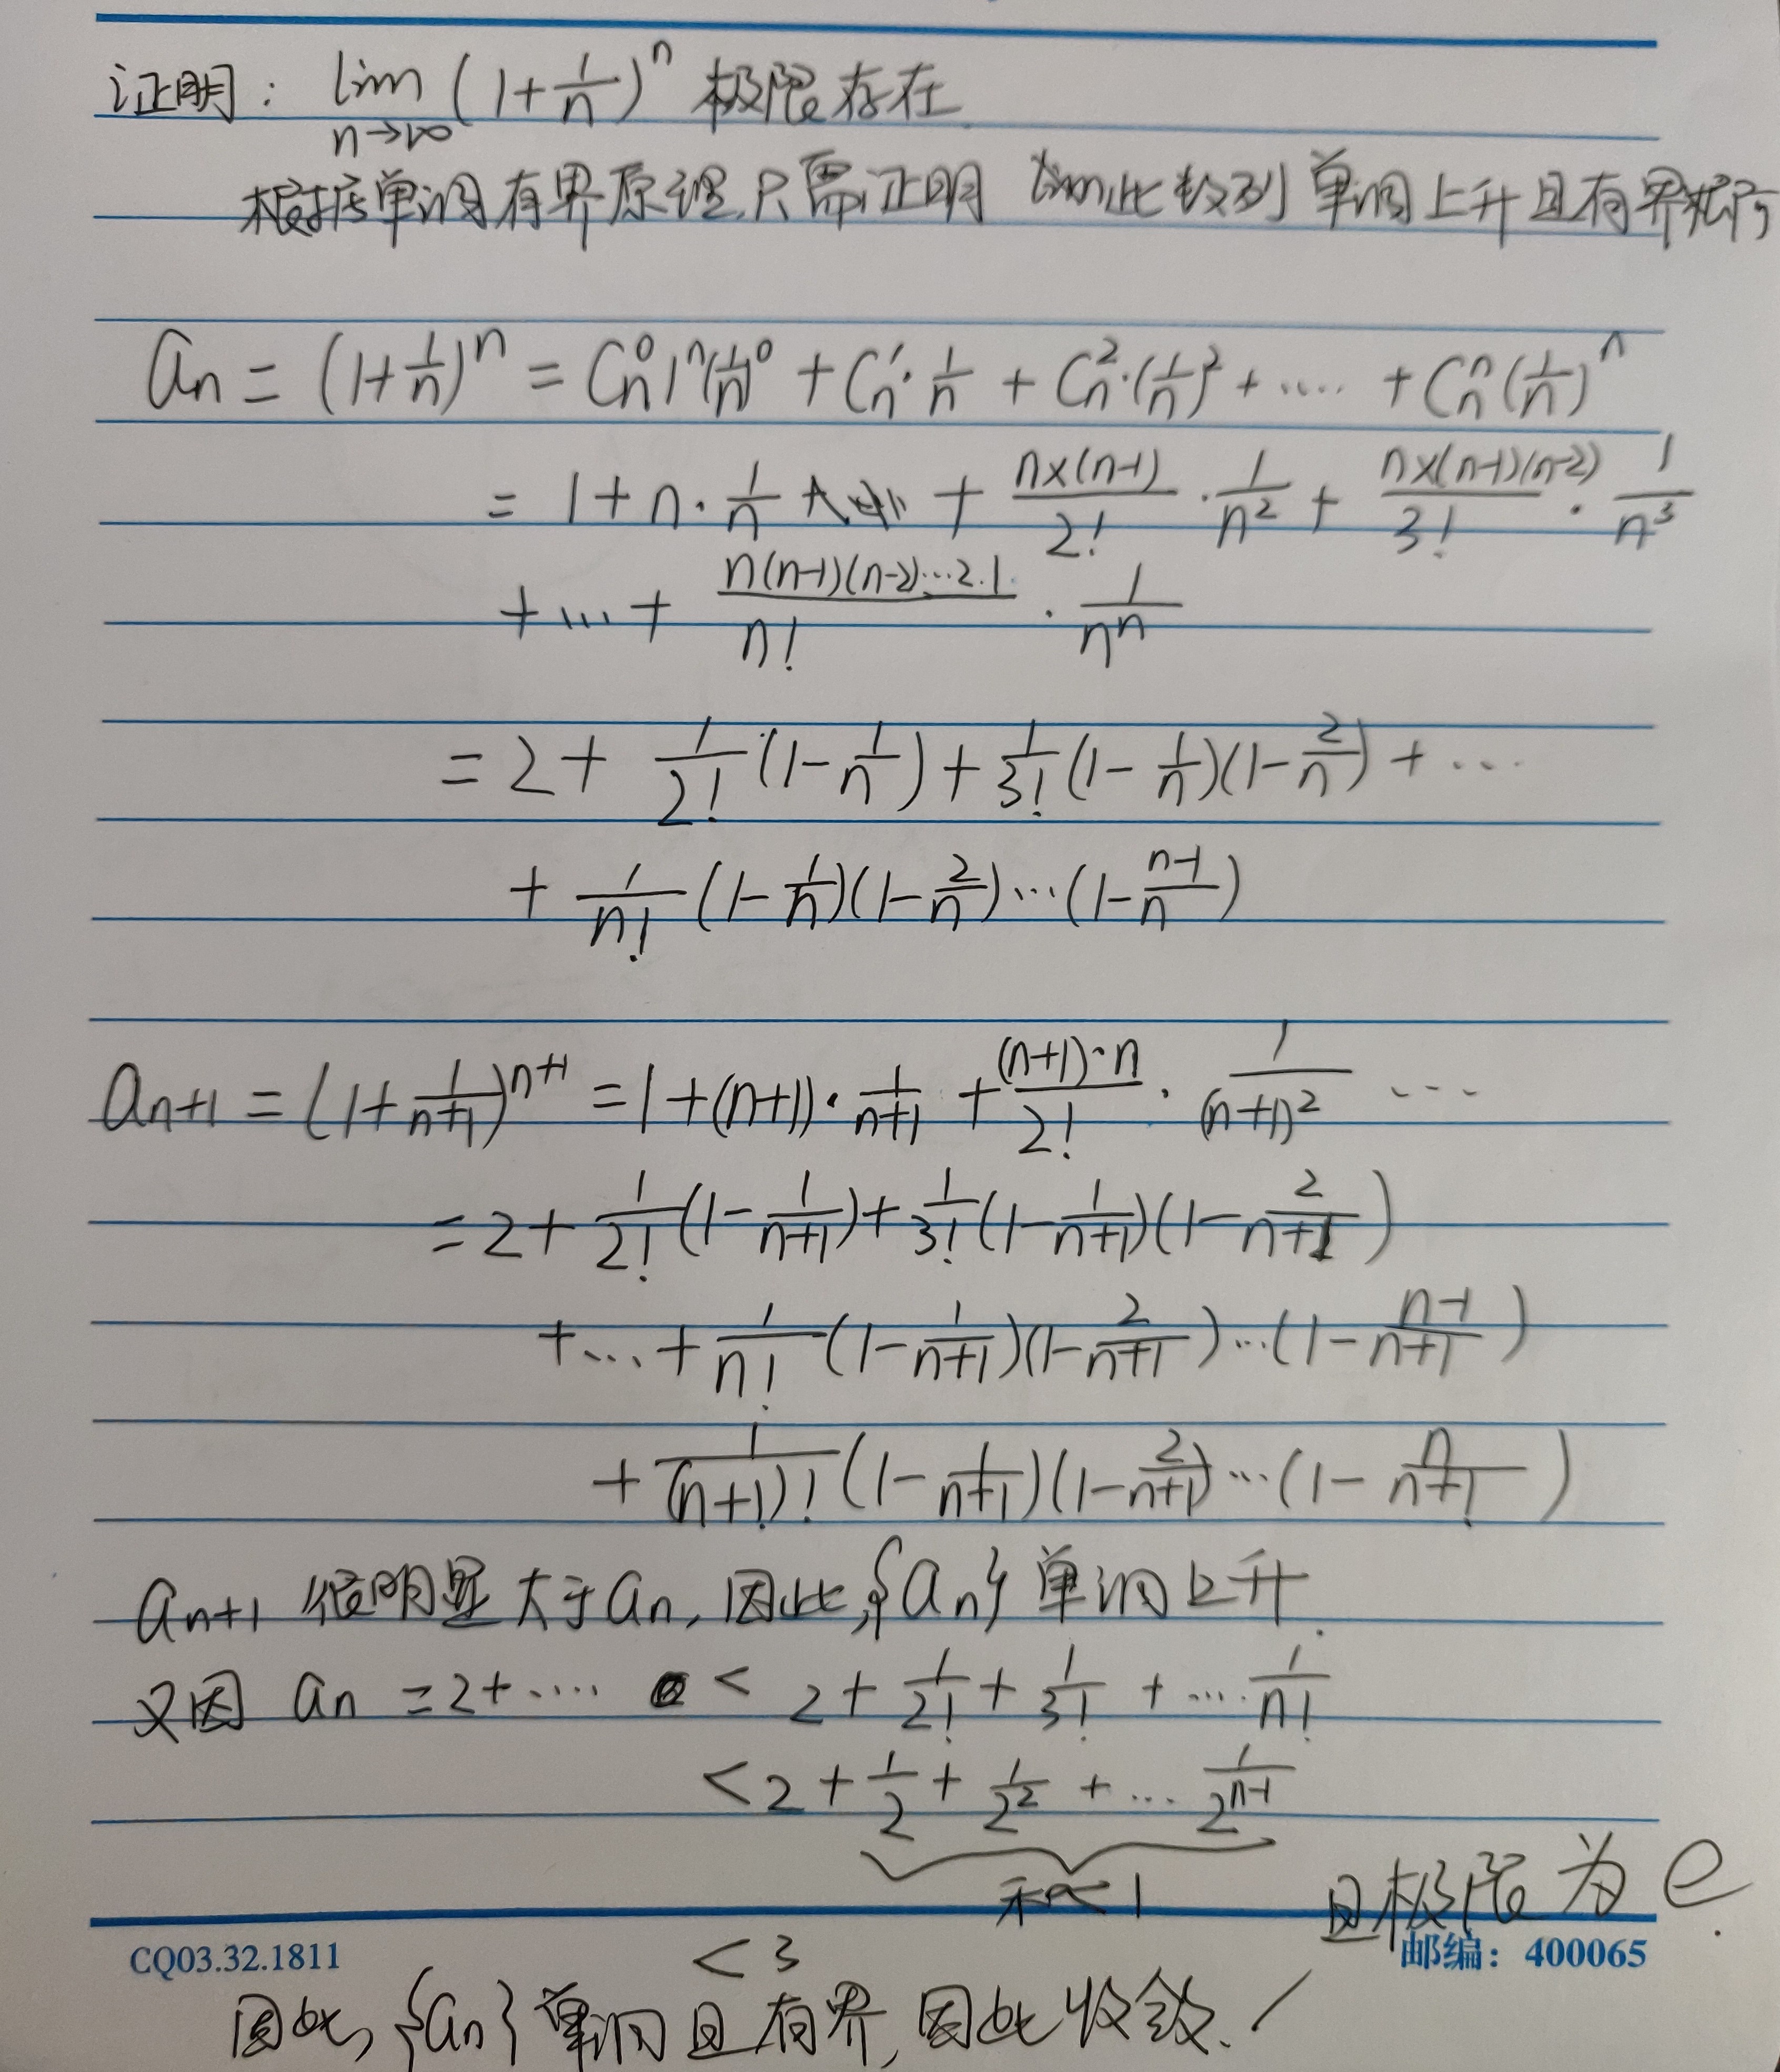 证明: lim (1+1/n)^n 极限存在.
n→∞
根据单调有界原理,只需证明 此数列单调上升且有界就行
an = (1+1/n)^n = Cn^0 1^n (1/n)^0 + Cn^1·1/n + Cn^2·(1/n)^2 + ···· + Cn^n (1/n)^n
= 1 + n·1/n + n×(n-1)/2! · 1/n^2 + n×(n-1)(n-2)/3! · 1/n^3
+ ··· + n(n-1)(n-2)···2·1/n! · 1/n^n
= 2 + 1/2! (1-1/n) + 1/3! (1-1/n)(1-2/n) + ···
+ 1/n! (1-1/n)(1-2/n)···(1-(n-1)/n)
an+1 = (1+1/(n+1))^(n+1) = 1 + (n+1)·1/(n+1) + (n+1)·n/2! · 1/(n+1)^2 ···
= 2 + 1/2! (1-1/(n+1)) + 1/3! (1-1/(n+1))(1-2/(n+1))
+ ··· + 1/n! (1-1/(n+1))(1-2/(n+1))···(1-(n-1)/(n+1))
+ 1/(n+1)! (1-1/(n+1))(1-2/(n+1))···(1-n/(n+1))
an+1 很明显大于an, 因此,{an}单调上升.
又因 an = 2+···· < 2 + 1/2! + 1/3! + ···· 1/n!
< 2 + 1/2 + 1/2^2 + ··· 1/2^(n-1)
和<1
且极限为e.
< 3
CQ03.32.1811
邮编：400065
因此, {an}单调且有界,因此收敛.